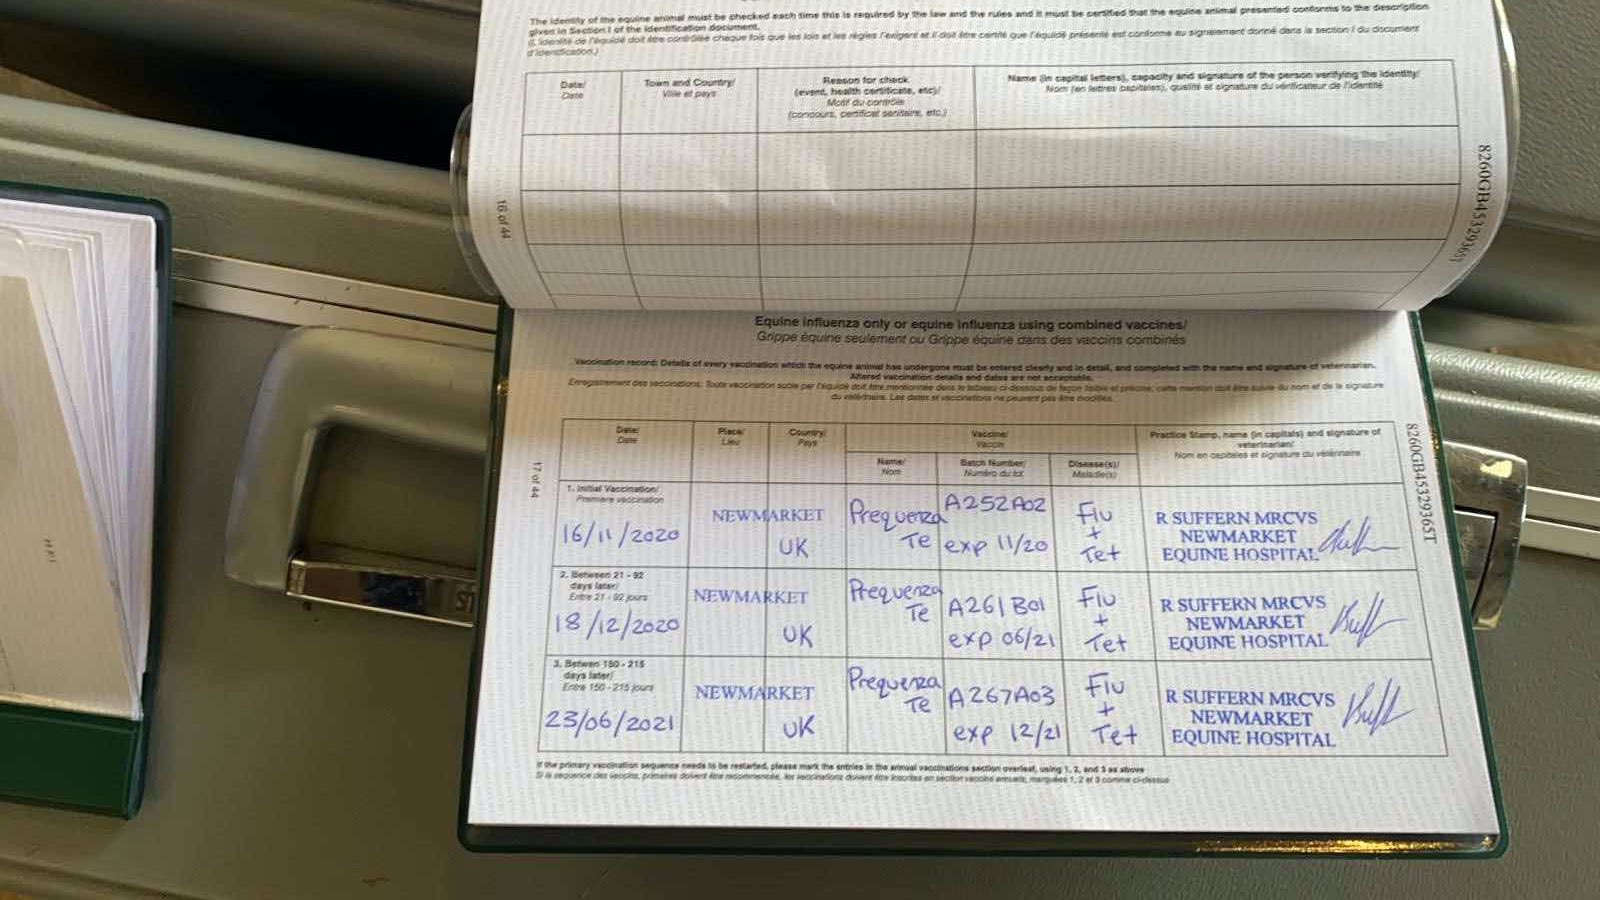 The identity of the equine animal must be checked each time this is required by the law and the rules and it must be certified that the equine animal presented conforms to the description
given in Section I of the identification document.
(L'identité de l'équidé doit être contrôlée chaque fois que les lois et les règles l'exigent et il doit être certifié que l'équidé présenté est conforme au signalement donné dans la section I du document
d'identification.)
Date/
Date
Town and Country/
Ville et pays
Reason for check
(event, health certificate, etc)/
Motif du contrôle
(concours, certificat sanitaire, etc.)
Name (in capital letters), capacity and signature of the person verifying the identity/
Nom (en lettres capitales), qualité et signature du vérificateur de l'identité
16 of 44
8260GB45329365T
Equine influenza only or equine influenza using combined vaccines/
Grippe équine seulement ou Grippe équine dans des vaccins combinés
Vaccination record: Details of every vaccination which the equine animal has undergone must be entered clearly and in detail, and completed with the name and signature of veterinarian.
Altered vaccination details and dates are not acceptable.
Enregistrement des vaccinations: Toute vaccination subie par l'équidé doit être mentionnée dans le tableau ci-dessous de façon lisible et précise, cette mention doit être suivie du nom et de la signature
du vétérinaire. Les dates et vaccinations ne peuvent pas être modifiés.
17 of 44
8260GB45329365T
Date/
Date
Place/
Lieu
Country/
Pays
Vaccine/
Vaccin
Name/
Nom
Batch Number/
Numéro du lot
Disease(s)/
Maladie(s)
Practice Stamp, name (in capitals) and signature of
veterinarian/
Nom en capitales et signature du vétérinaire
1. Initial Vaccination/
Première vaccination
16/11/2020
NEWMARKET
UK
Prequenza
Te
A252A02
exp 11/20
Flu
+
Tet
R SUFFERN MRCVS
NEWMARKET
EQUINE HOSPITAL
2. Between 21 - 92
days later/
Entre 21 - 92 jours
18/12/2020
NEWMARKET
UK
Prequenza
Te
A261B01
exp 06/21
Flu
+
Tet
R SUFFERN MRCVS
NEWMARKET
EQUINE HOSPITAL
3. Betwen 150 - 215
days later/
Entre 150 - 215 jours
23/06/2021
NEWMARKET
UK
Prequenza
Te
A267A03
exp 12/21
Flu
+
Tet
R SUFFERN MRCVS
NEWMARKET
EQUINE HOSPITAL
If the primary vaccination sequence needs to be restarted, please mark the entries in the annual vaccinations section overleaf, using 1, 2, and 3 as above
Si la séquence des vaccins, primaires doivent être recommencée, les vaccinations doivent être inscrites en section vaccins annuels, marquées 1, 2 et 3 comme ci-dessus